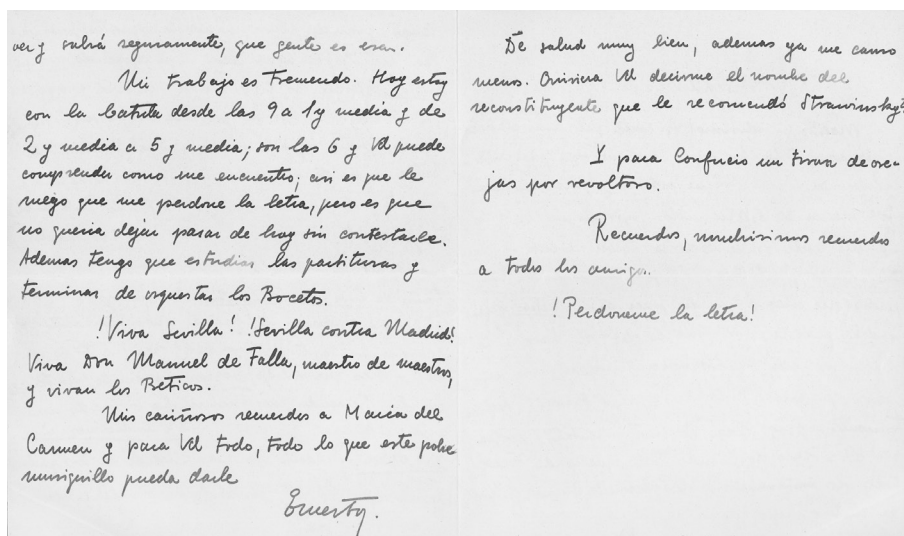 ver y sabrá seguramente, que gente es esa.
Mi trabajo es tremendo. Hoy estoy
con la batuta desde las 9 a 1 y media y de
2 y media a 5 y media; son las 6 y Vd puede
comprender como me encuentro; asi es que le
ruego que me perdone la letra, pero es que
no queria dejar pasar de hoy sin contestarle.
Ademas tengo que estudiar las partituras y
terminar de orquestar los Bocetos.
!Viva Sevilla! !Sevilla contra Madrid!
Viva Don Manuel de Falla, maestro de maestros,
y vivan los Béticos.
Mis cariñosos recuerdos a Maria del
Carmen y para Vd todo, todo lo que este pobre
musiquillo pueda darle
Ernesto.
De salud muy bien, ademas ya me canso
menos. Quisiera Vd decirme el nombre del
reconstituyente que le recomendó Strawinsky?
Y para Confucio un tirón de ore-
jas por revoltoso.
Recuerdos, muchisimos recuerdos
a todos los amigos.
!Perdoneme la letra!